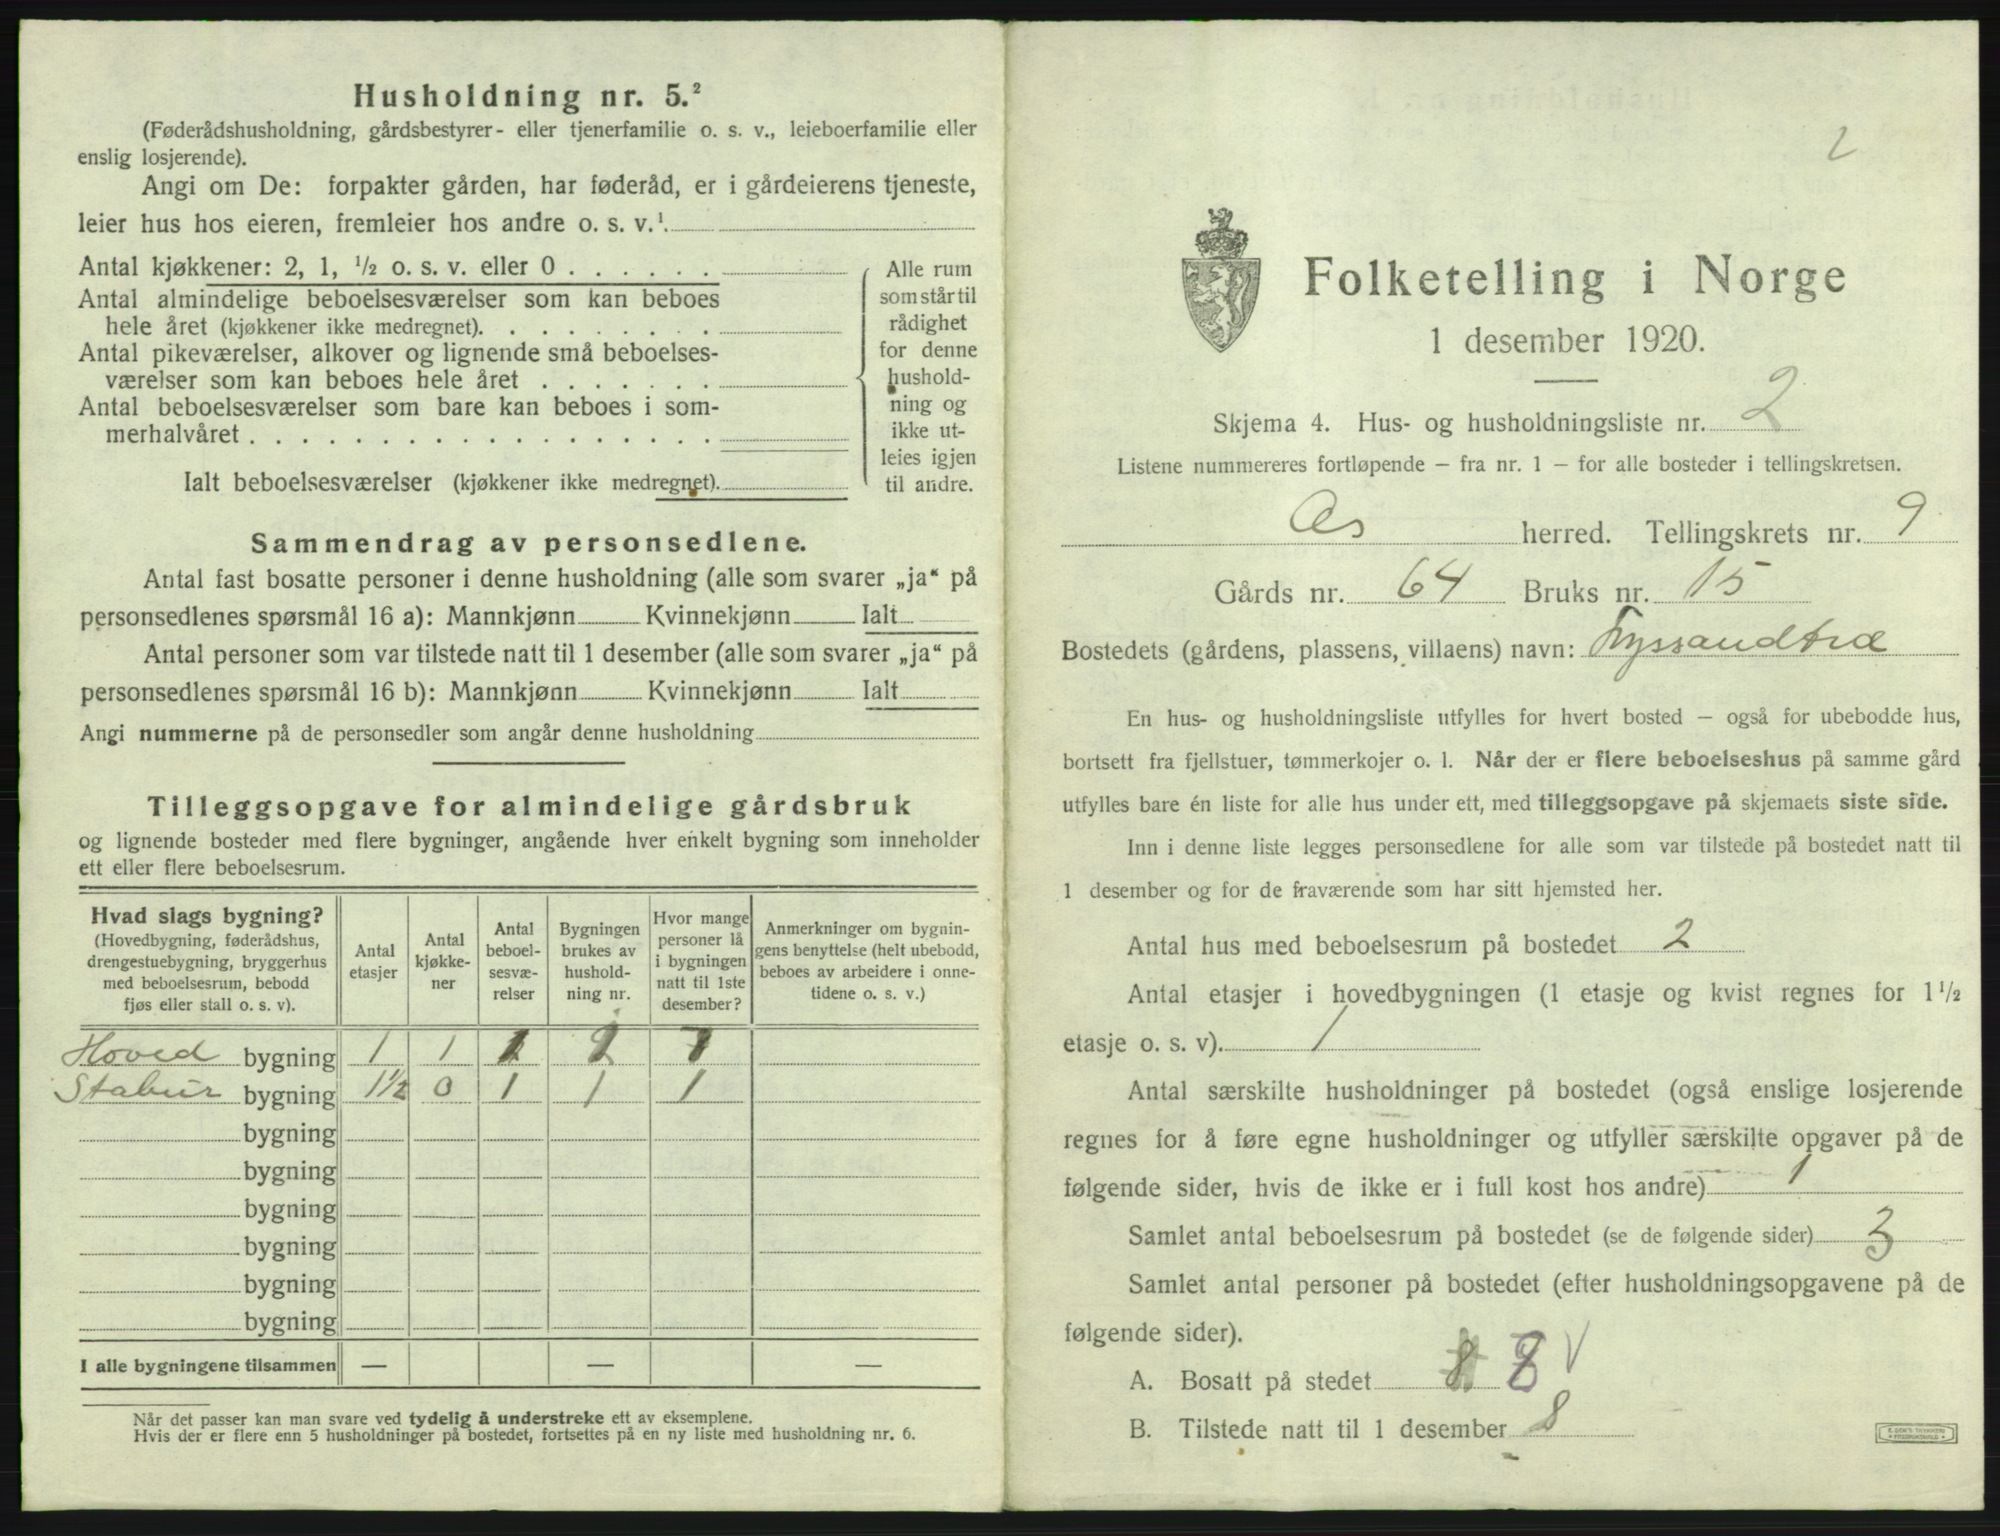 Husholdning nr. 5.²
(Føderådshusholdning, gårdsbestyrer- eller tjenerfamilie o. s. v., leieboerfamilie eller
enslig losjerende).
Angi om De: forpakter gården, har føderåd, er i gårdeierens tjeneste,
leier hus hos eieren, fremleier hos andre o. s. v.¹
Antal kjøkkener: 2, 1, ½ o. s. v. eller 0 . . . . . .
Antal almindelige beboelsesværelser som kan beboes
hele året (kjøkkener ikke medregnet). . . . . . . . .
Antal pikeværelser, alkover og lignende små beboelses-
værelser som kan beboes hele året . . . . . . .
Antal beboelsesværelser som bare kan beboes i som-
merhalvåret . . . . . . . . . . . . . . . . . .
Ialt beboelsesværelser (kjøkkener ikke medregnet).
Alle rum
som står til
rådighet
for denne
hushold-
ning og
ikke ut-
leies igjen
til andre.
Sammendrag av personsedlene.
Antal fast bosatte personer i denne husholdning (alle som svarer „ja“ på
personsedlenes spørsmål 16 a): Mannkjønn Kvinnekjønn Ialt
Antal personer som var tilstede natt til 1 desember (alle som svarer „ja“ på
personsedlenes spørsmål 16 b): Mannkjønn Kvinnekjønn Ialt
Angi nummerne på de personsedler som angår denne husholdning
Tilleggsopgave for almindelige gårdsbruk
og lignende bosteder med flere bygninger, angående hver enkelt bygning som inneholder
ett eller flere beboelsesrum.
Hvad slags bygning?
(Hovedbygning, føderådshus,
drengestuebygning, bryggerhus
med beboelsesrum, bebodd
fjøs eller stall o. s. v).
Antal
etasjer
Antal
kjøkke-
ner
Antal
beboel-
sesvæ-
relser
Bygningen
brukes av
hushold-
ning nr.
Hvor mange
personer lå
i bygningen
natt til 1ste
desember?
Anmerkninger om bygnin-
gens benyttelse (helt ubebodd,
beboes av arbeidere i onne-
tidene o. s. v.)
Hoved bygning 1 1 7
Stabur bygning 1½ 0 1 1 1
bygning
bygning
bygning
bygning
bygning
bygning
I alle bygningene tilsammen — — —
Når det passer kan man svare ved tydelig å understreke ett av eksemplene.
Hvis der er flere enn 5 husholdninger på bostedet, fortsettes på en ny liste med husholdning nr. 6.
2
Folketelling i Norge
1 desember 1920.
Skjema 4. Hus- og husholdningsliste nr. 2
Listene nummereres fortløpende — fra nr. 1 — for alle bosteder i tellingskretsen.
Os herred. Tellingskrets nr. 9
Gårds nr. 64 Bruks nr. 15
Bostedets (gårdens, plassens, villaens) navn:
En hus- og husholdningsliste utfylles for hvert bosted — også for ubebodde hus,
bortsett fra fjellstuer, tømmerkojer o. l. Når der er flere beboelseshus på samme gård
utfylles bare én liste for alle hus under ett, med tilleggsopgave på skjemaets siste side.
Inn i denne liste legges personsedlene for alle som var tilstede på bostedet natt til
1 desember og for de fraværende som har sitt hjemsted her.
Antal hus med beboelsesrum på bostedet 2
Antal etasjer i hovedbygningen (1 etasje og kvist regnes for 1½
etasje o. s. v). 1
Antal særskilte husholdninger på bostedet (også enslige losjerende
regnes for å føre egne husholdninger og utfyller særskilte opgaver på de
følgende sider, hvis de ikke er i full kost hos andre) 1
Samlet antal beboelsesrum på bostedet (se de følgende sider) 3
Samlet antal personer på bostedet (efter husholdningsopgavene på de
følgende sider).
A. Bosatt på stedet 8 8
B. Tilstede natt til 1 desember 8